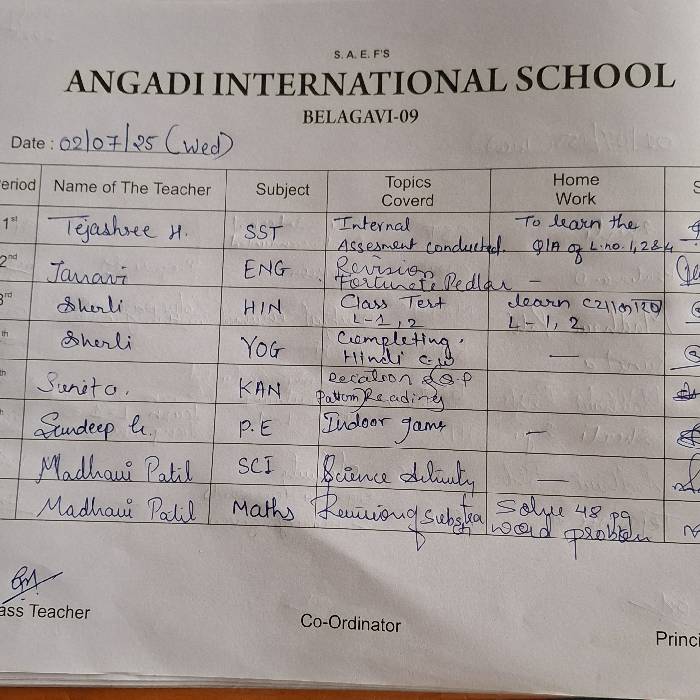 S. A. E. F'S
ANGADI INTERNATIONAL SCHOOL
BELAGAVI-09
Date : 02/07/25 (Wed)
eriod Name of The Teacher Subject Topics Coverd Home Work S
1st Tejashree H. SST Internal Assesment conducted. To learn the Q/A of L.no. 1, 2 & 4
2nd Janavi ENG Revision Fortunete Pedlar –
3rd Sherli HIN Class Test L-1, 2 learn L-1, 2
th Sherli YOG Completing Hindi c.w —
th Sunita. KAN Reading
Sandeep G. P.E Indoor game –
Madhavi Patil SCI Science Activity —
Madhavi Patil Maths Revision of Solve 48 pg word problem
ass Teacher
Co-Ordinator
Princi